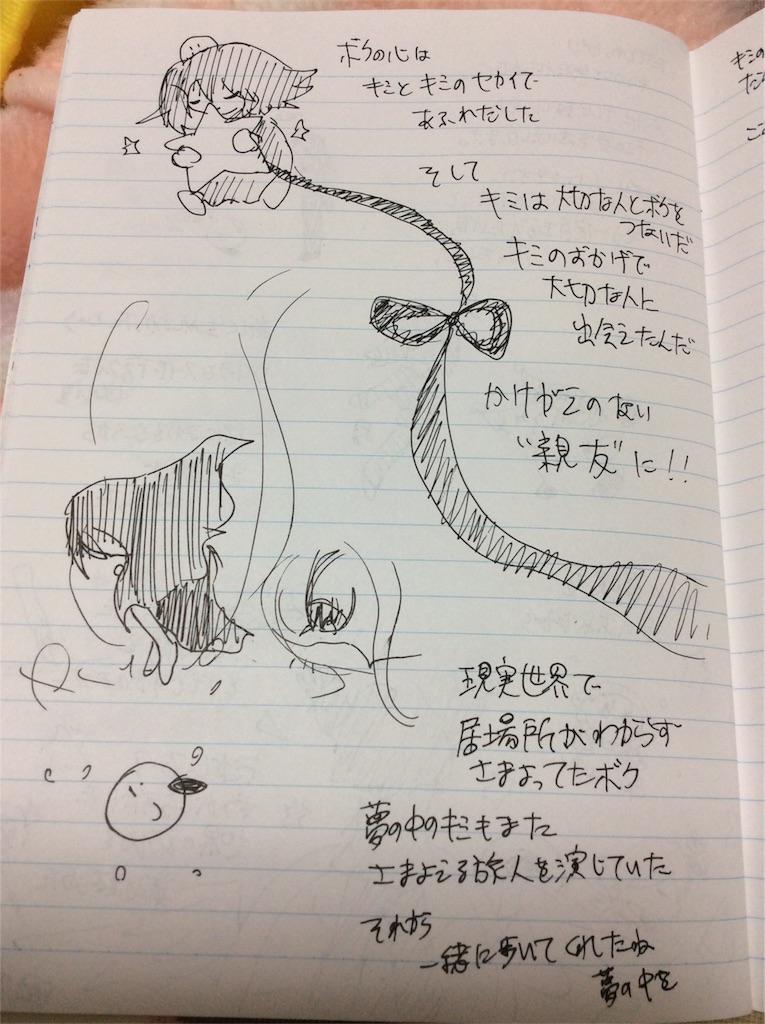 ボクの心は
キミとキミのセカイで
あふれだした
そして
キミは大切な人とボクを
つないだ
キミのおかげで
大切な人に
出会えたんだ
かけがえのない
"親友"に!!
現実世界で
居場所がわからず
さまよってたボク
夢の中のキミもまた
さまよえる旅人を演じていた
それから
一緒に歩いてくれたね
夢の中を
キミの